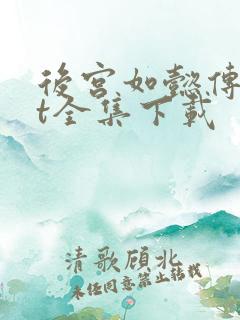 後宮如懿傳
t全集下載
清歌頋北
未经同意禁止转载